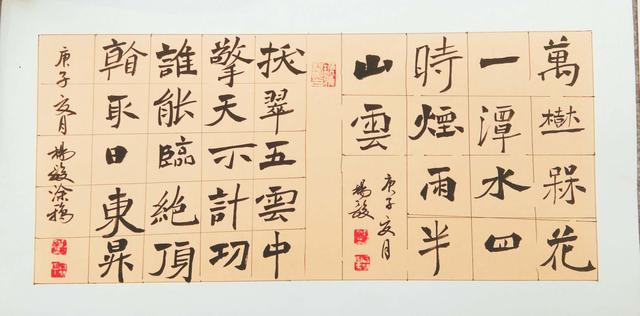 萬樹槑花
一潭水四
時煙雨半
山雲
庚子亥月
楊
拔翠五雲中
擎天不計功
誰能臨絕頂
看取日東昇
庚子亥月 楊 涂鴉